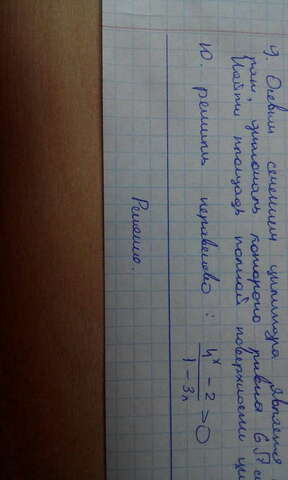 9. Осевым сечением цилиндра является
диагональ которого равна 6√
Найти площадь полной поверхности
10. решить неравенство: (4ˣ - 2)/(1 - 3x) > 0
Решение.